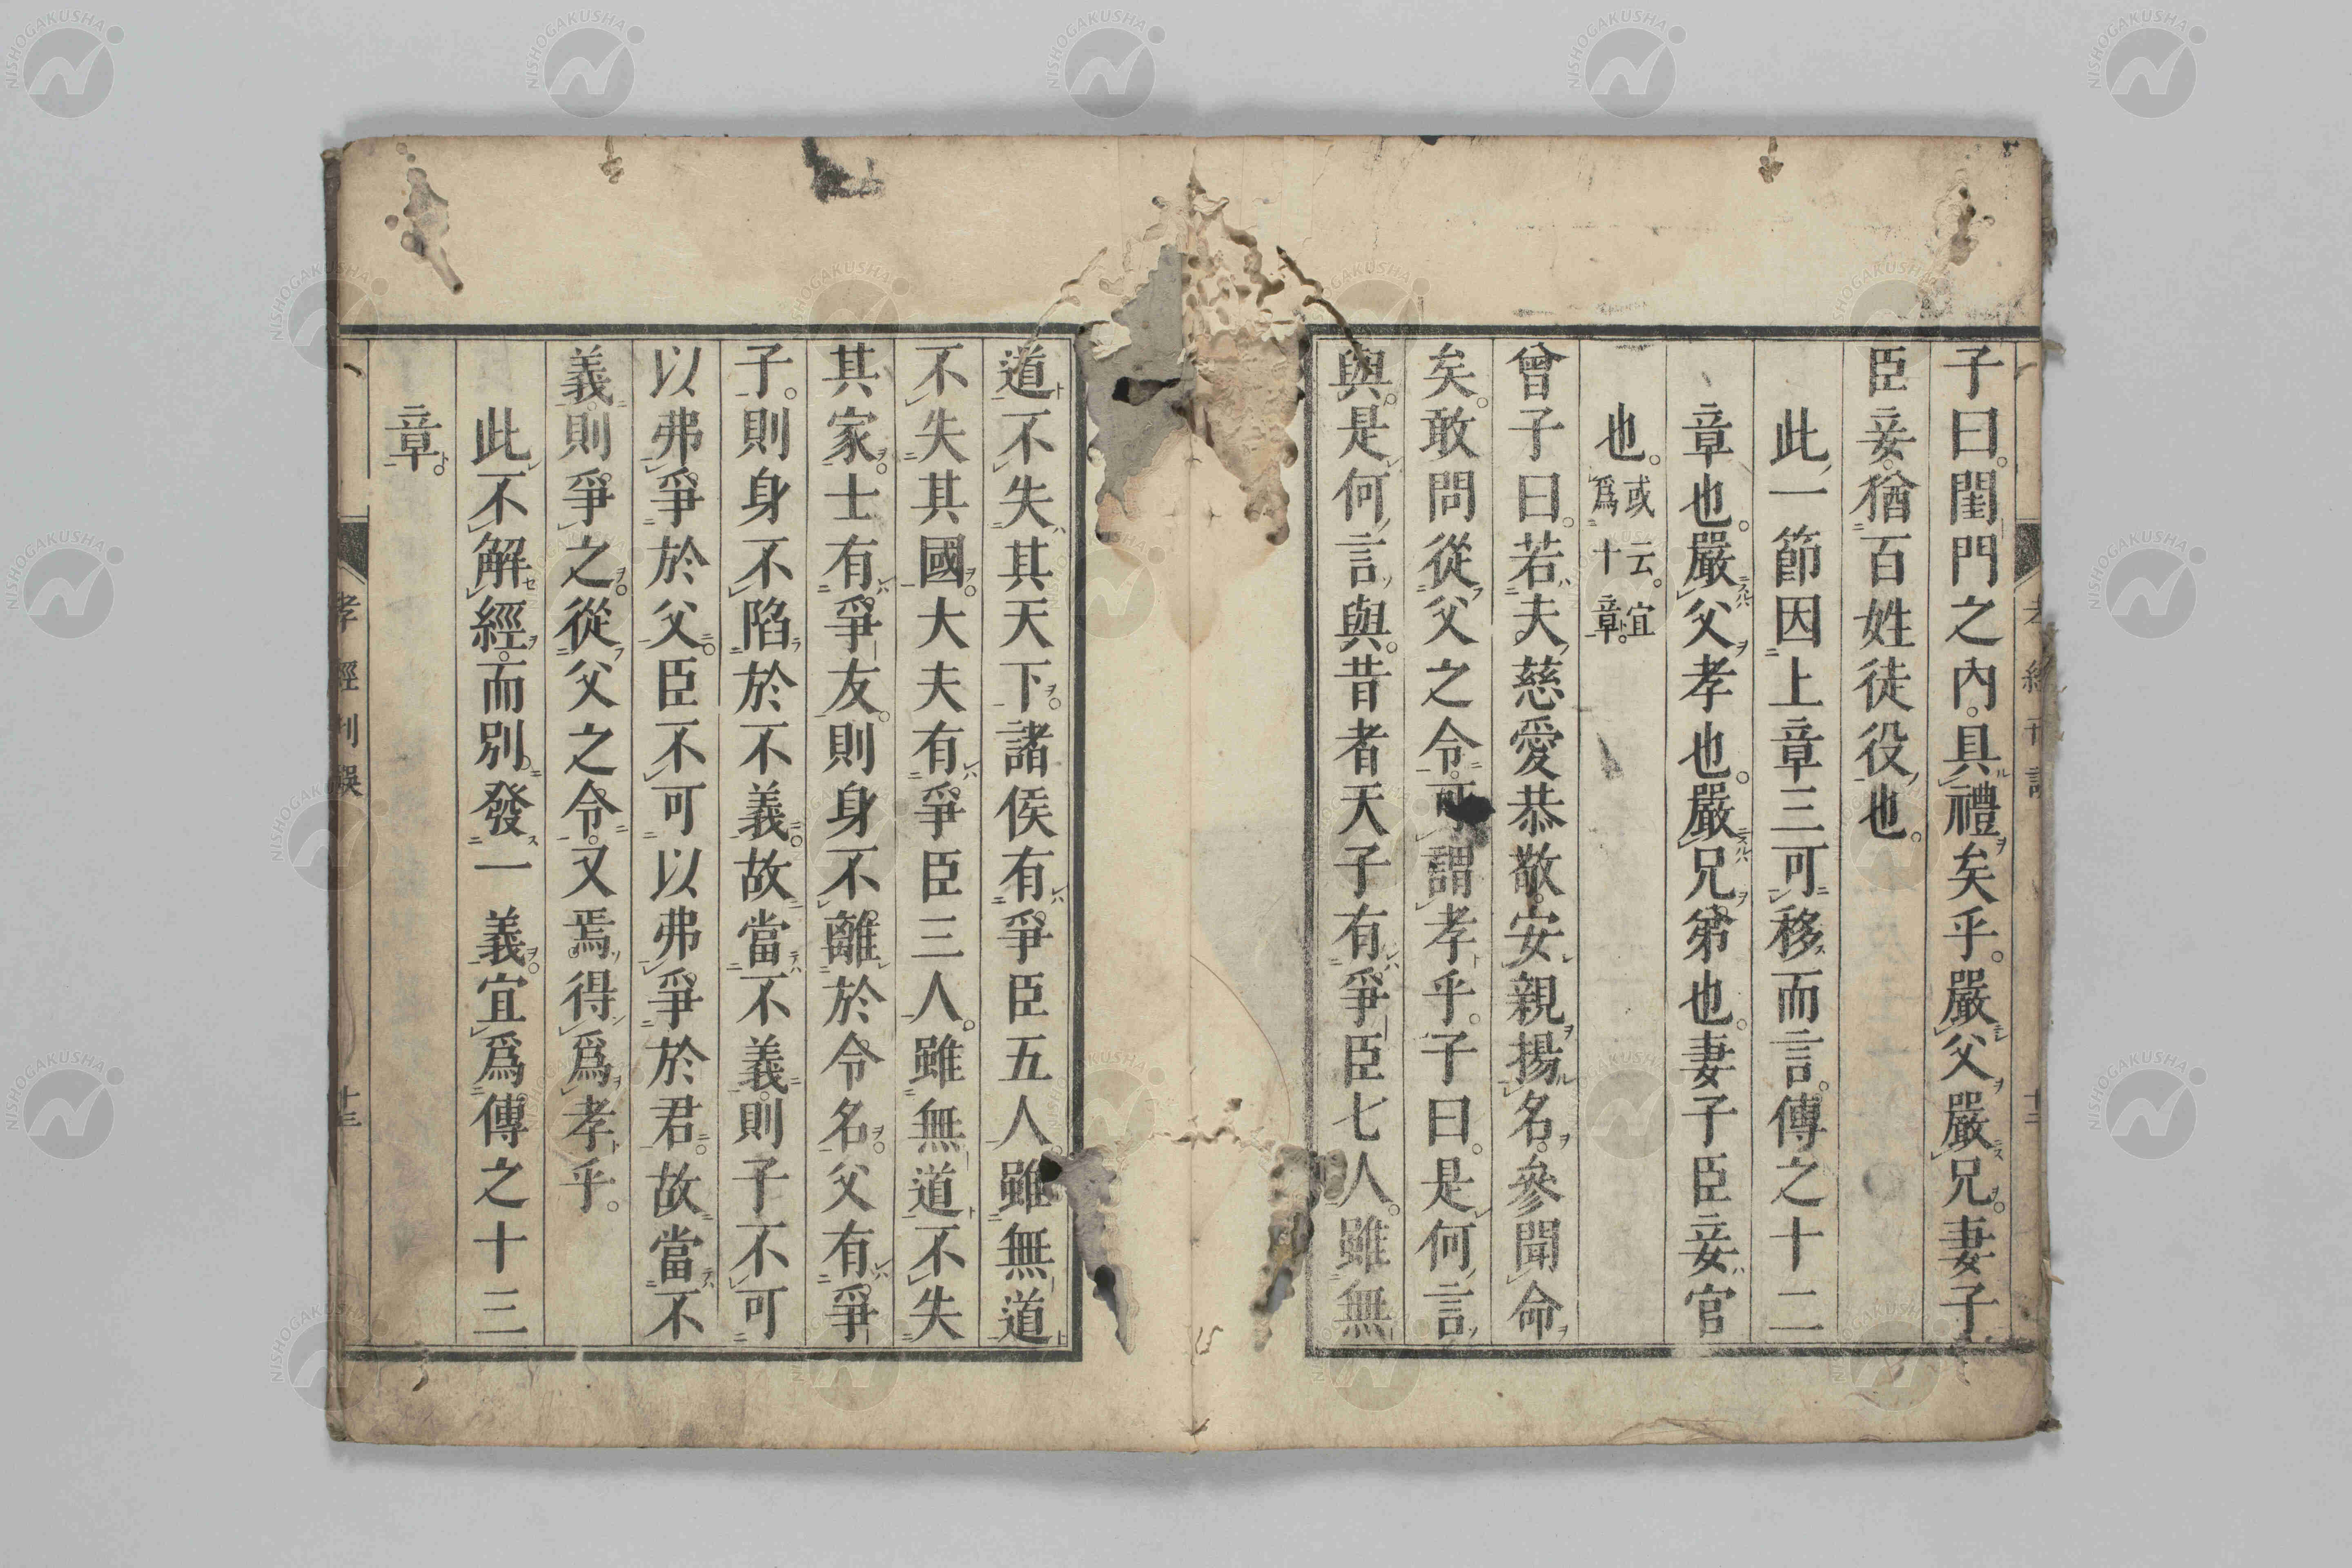 子曰。閨門之內。具禮矣乎。嚴父嚴兄。妻子
臣妾。猶百姓徒役也。
此一節因上章三可移而言。傳之十二
章也。嚴父孝也。嚴兄第也。妻子臣妾官
也。或云。宜爲十章。
曾子曰。若夫慈愛恭敬。安親揚名。參聞命
矣。敢問從父之令。可謂孝乎。子曰。是何言
與。是何言與。昔者天子有爭臣七人。雖無
道不失其天下。諸侯有爭臣五人。雖無道
不失其國。大夫有爭臣三人。雖無道不失
其家。士有爭友。則身不離於令名。父有爭
子。則身不陷於不義。故當不義。則子不可
以弗爭於父。臣不可以弗爭於君。故當不
義。則爭之。從父之令。又焉得爲孝乎。
此不解經。而別發一義。宜爲傳之十三
章。
孝經刊誤
十三
NISHOGAKUSHA